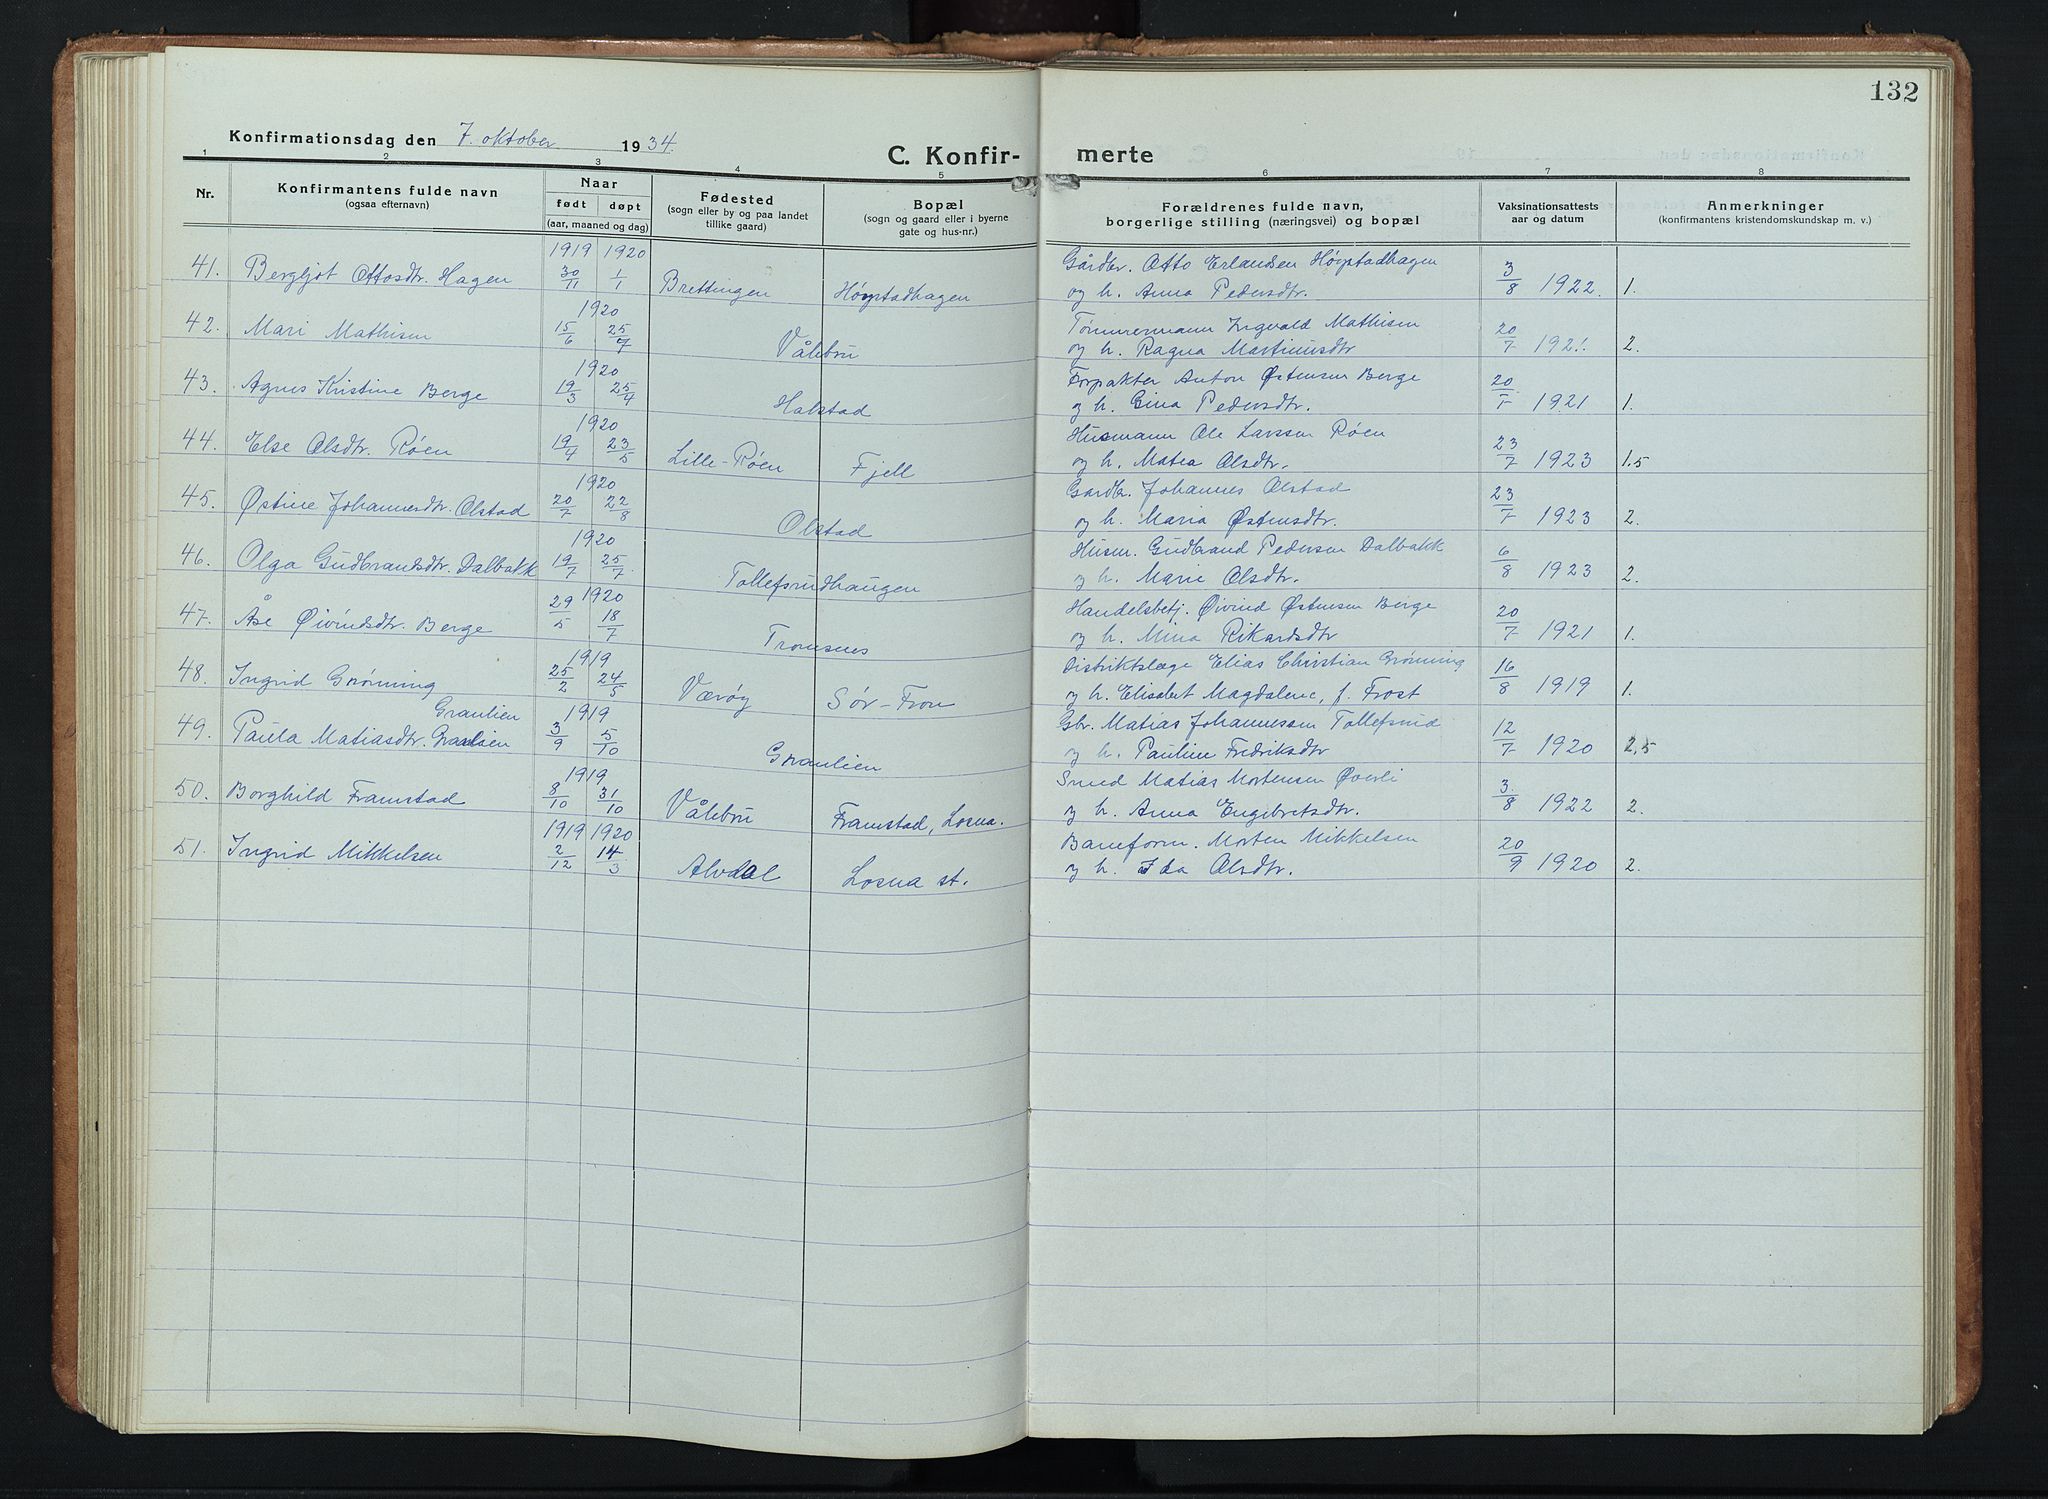 132
Konfirmationsdag den 7. oktober 1934.
C. Konfir- merte
1 2 3 4 5 6 7 8
Nr.
Konfirmantens fulde navn
(ogsaa efternavn)
Naar
født døpt
(aar, maaned og dag)
Fødested
(sogn eller by og paa landet
tillike gaard)
Bopæl
(sogn og gaard eller i byerne
gate og hus-nr.)
Forældrenes fulde navn,
borgerlige stilling (næringsvei) og bopæl
Vaksinationsattests
aar og datum
Anmerkninger
(konfirmantens kristendomskundskap m. v.)
1919 1920 Gårdbr. Otto Erlandsen Høystadhagen
41. Bergljot Ottosdtr. Hagen 30/11 1/1 Brettingen Høystadhagen og h. Anna Pedersdtr. 3/8 1922. 1.
1920 Tømmermann Ingvald Mathisen
42. Mari Mathisen 15/6 25/7 Vålebru og h. Ragna Martinusdtr 20/7 1921. 2.
1920 Forpakter Anton Østensen Berge
43. Agnes Kristine Berge 19/3 25/4 Halstad og h. Gina Pedersdtr. 20/7 1921 1.
1920 Husmann Ole Larssen Røen
44. Else Olsdtr. Røen 19/4 23/5 Lille-Røen Fjell og h. Matea Olsdtr. 23/7 1923 1.5
1920 Gardbr. Johannes Olstad
45. Østine Johannesdtr. Olstad 20/7 22/8 Olstad og h. Maria Østensdtr. 23/7 1923 2.
1920 Husm. Gudbrand Pedersen Dalbakk
46. Olga Gudbrandsdtr. Dalbakk 19/7 25/7 Tollefsrudhaugen og h. Marie Olsdtr. 6/8 1923 2.
1920 Handelsbetj. Øivind Østensen Berge
47. Åse Øivindsdtr. Berge 29/5 18/7 Tromsnes og h. Mina Rikardsdtr 20/7 1921 1.
1919 Distriktslæge Elias Christian Grønning
48. Ingrid Grønning 25/2 24/5 Værøy Sør-Fron og h. Elisabet Magdalene, f. Frost 16/8 1919 1.
Graulien 1919 Gbr. Matias Johannessen Tollefsrud
49. Paula Matiasdtr. Graulien 3/9 5/10 Graulien og h. Pauline Fredriksdtr 12/7 1920 2.5
1919 Smed Matias Mortensen Øverli
50. Borghild Framstad 8/10 31/10 Vålebru Framstad, Losna. og h. Anna Engebretsdtr. 3/8 1922 2.
1919 1920 Baneform. Morten Mikkelsen
51. Ingrid Mikkelsen 2/12 14/3 Alvdal Losna st. og h. Ida Olsdtr. 20/9 1920 2.